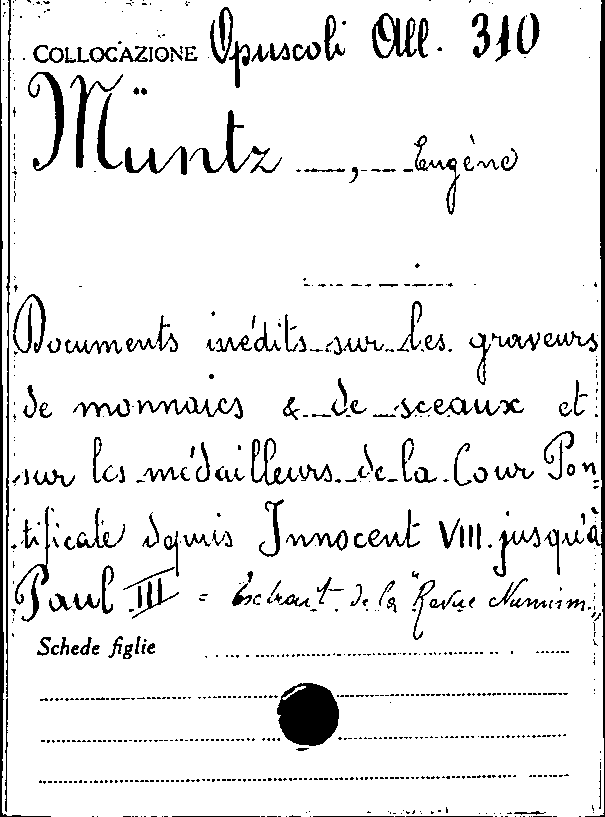 COLLOCAZIONE Opuscoli All. 310
Müntz, Eugène
Documents inédits sur les graveurs
de monnaies & de sceaux et
sur les médailleurs de la Cour Pon-
tificale depuis Innocent VIII jusqu'à
Paul III = Extrait de la "Revue Numism."
Schede figlie